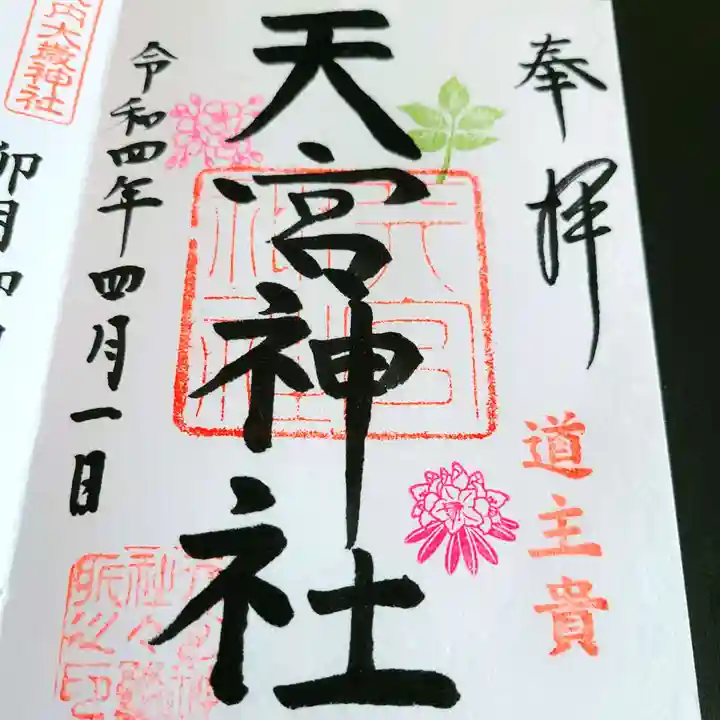 奉拝
道主貴
天宮神社
天宮神社
令和四年四月一日
内大歳神社
卯月